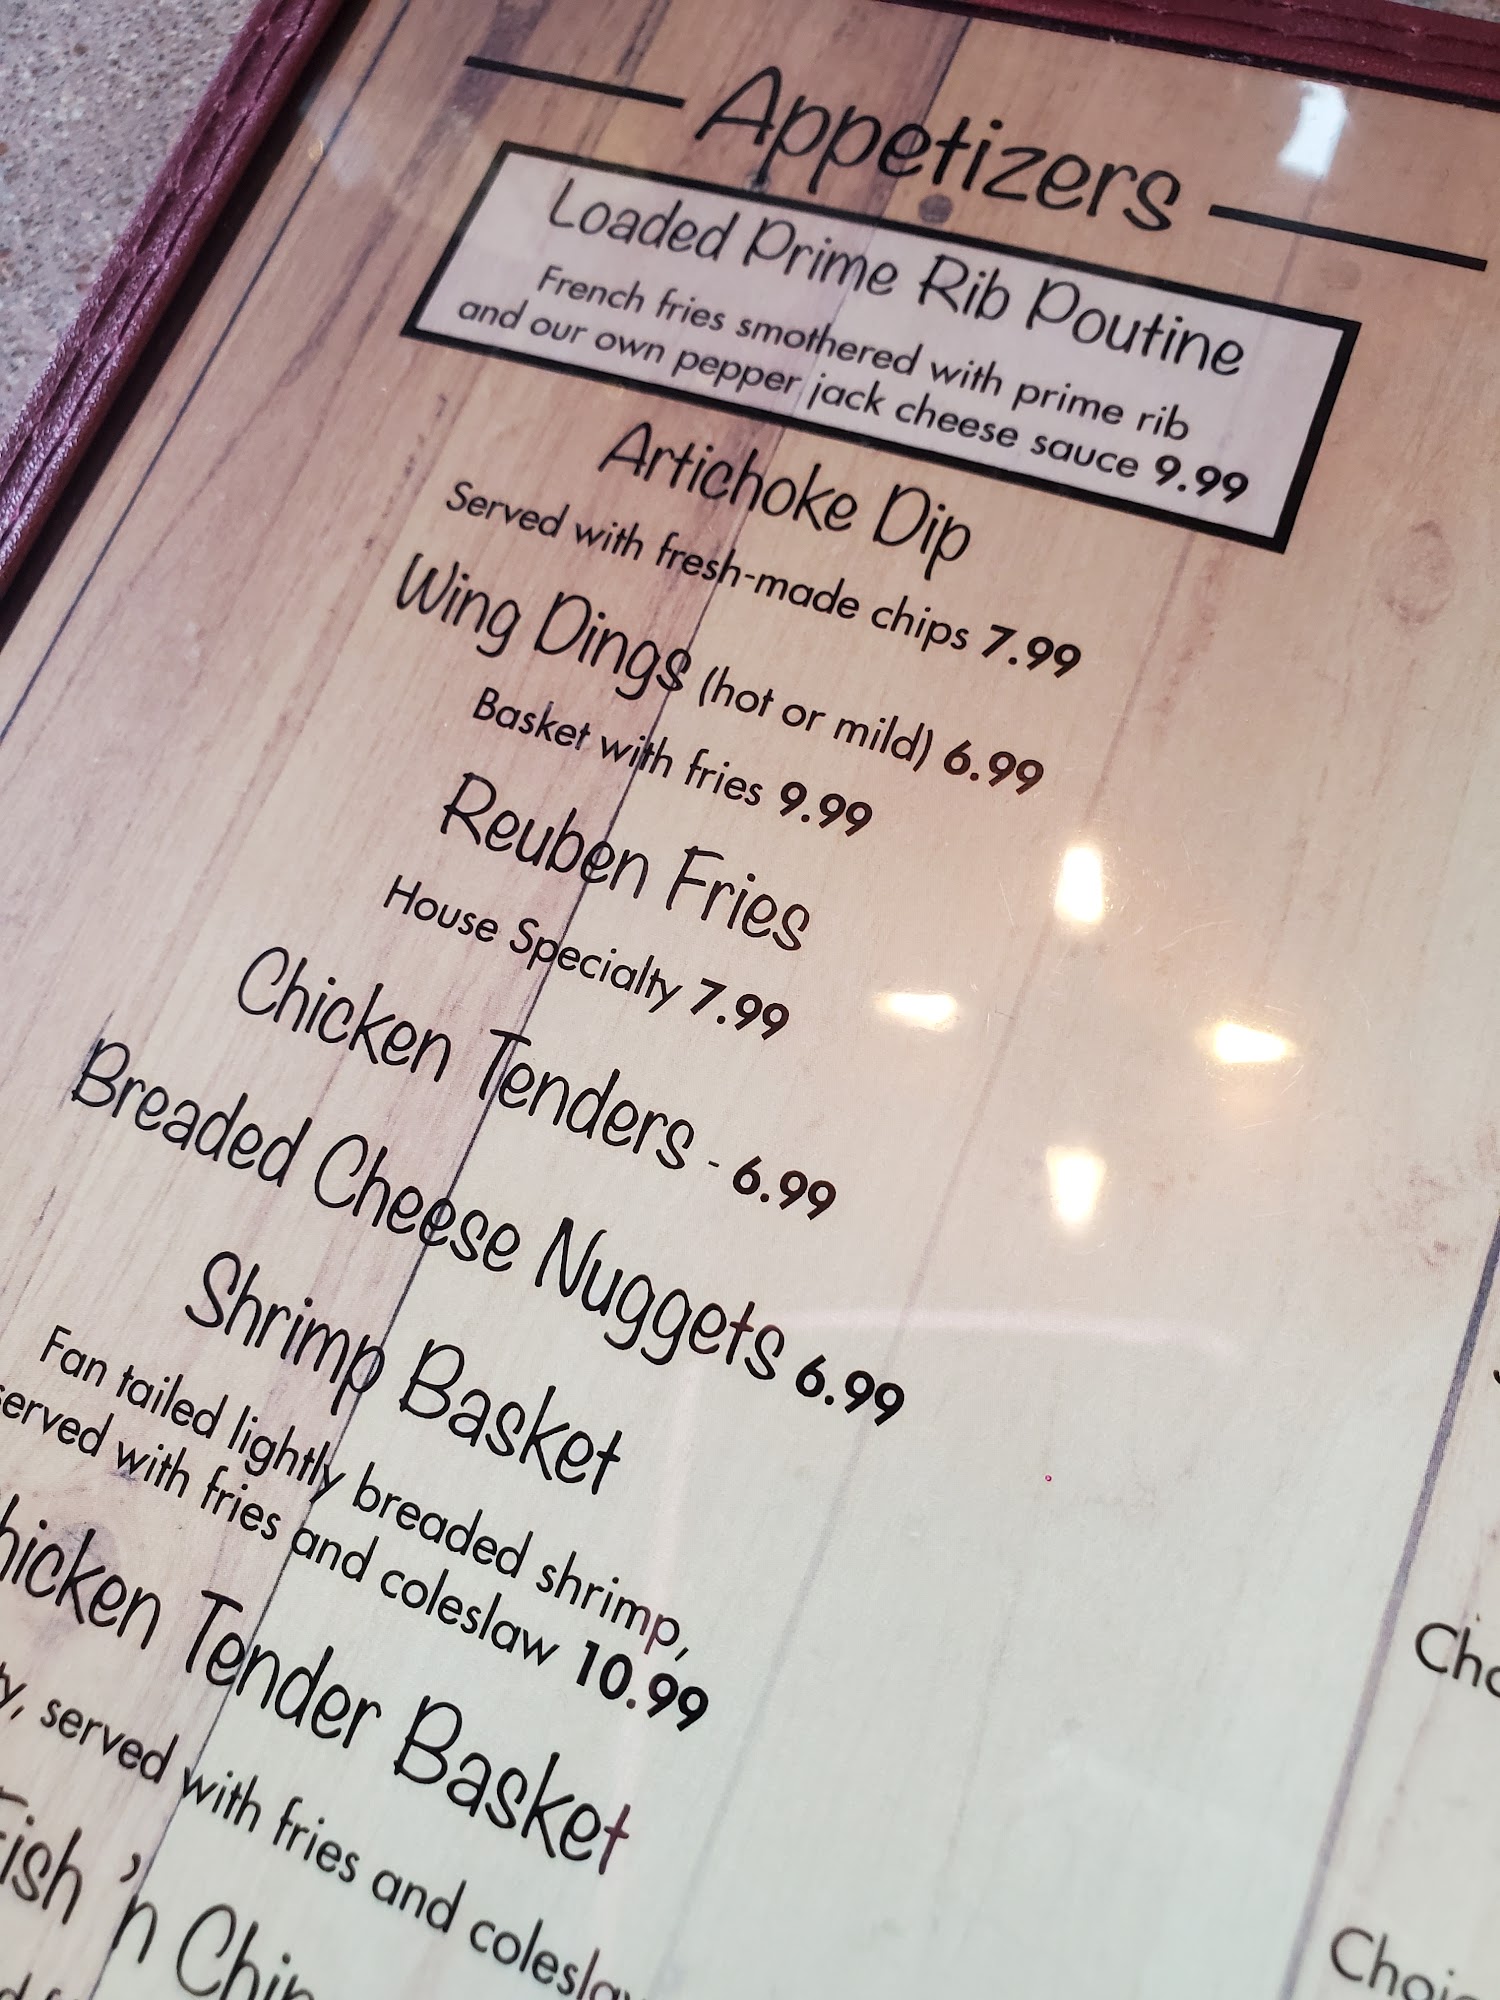 Appetizers
Loaded Prime Rib Poutine
French fries smothered with prime rib
and our own pepper jack cheese sauce 9.99
Artichoke Dip
Served with fresh-made chips 7.99
Wing Dings (hot or mild) 6.99
Basket with fries 9.99
Reuben Fries
House Specialty 7.99
Chicken Tenders - 6.99
Breaded Cheese Nuggets 6.99
Shrimp Basket
Fan tailed lightly breaded shrimp,
served with fries and coleslaw 10.99
Tender Basket
served with fries and
'n